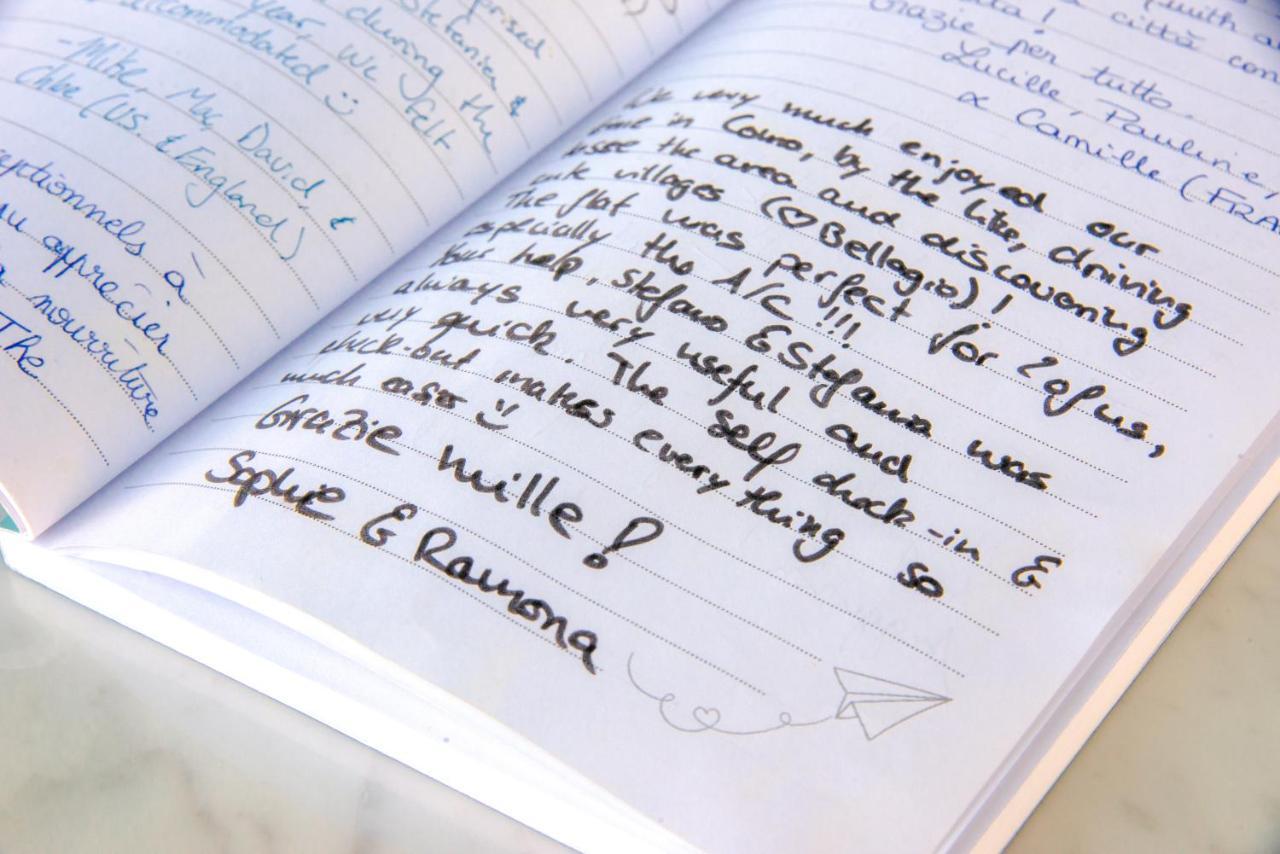 prised
Stefania &
during the
year, we felt
accommodated :)
-Mike, Mac, David, &
Chloe (US. & England)
eptionnels à
apprécier
nourriture
The
(with a
città con
Grazie per tutto.
Lucille, Pauline,
& Camille (FRA
We very much enjoyed our
time in Como, by the like, driving
the area and discovering
villages (♡Bellagio)!
The flat was perfect for 2 of us,
especially the A/C !!!
Your help, Stefano & Stefania was
always very useful and
very quick. The self check-in &
check-out makes everything so
much easier :)
Grazie mille!
Sophie & Ramona